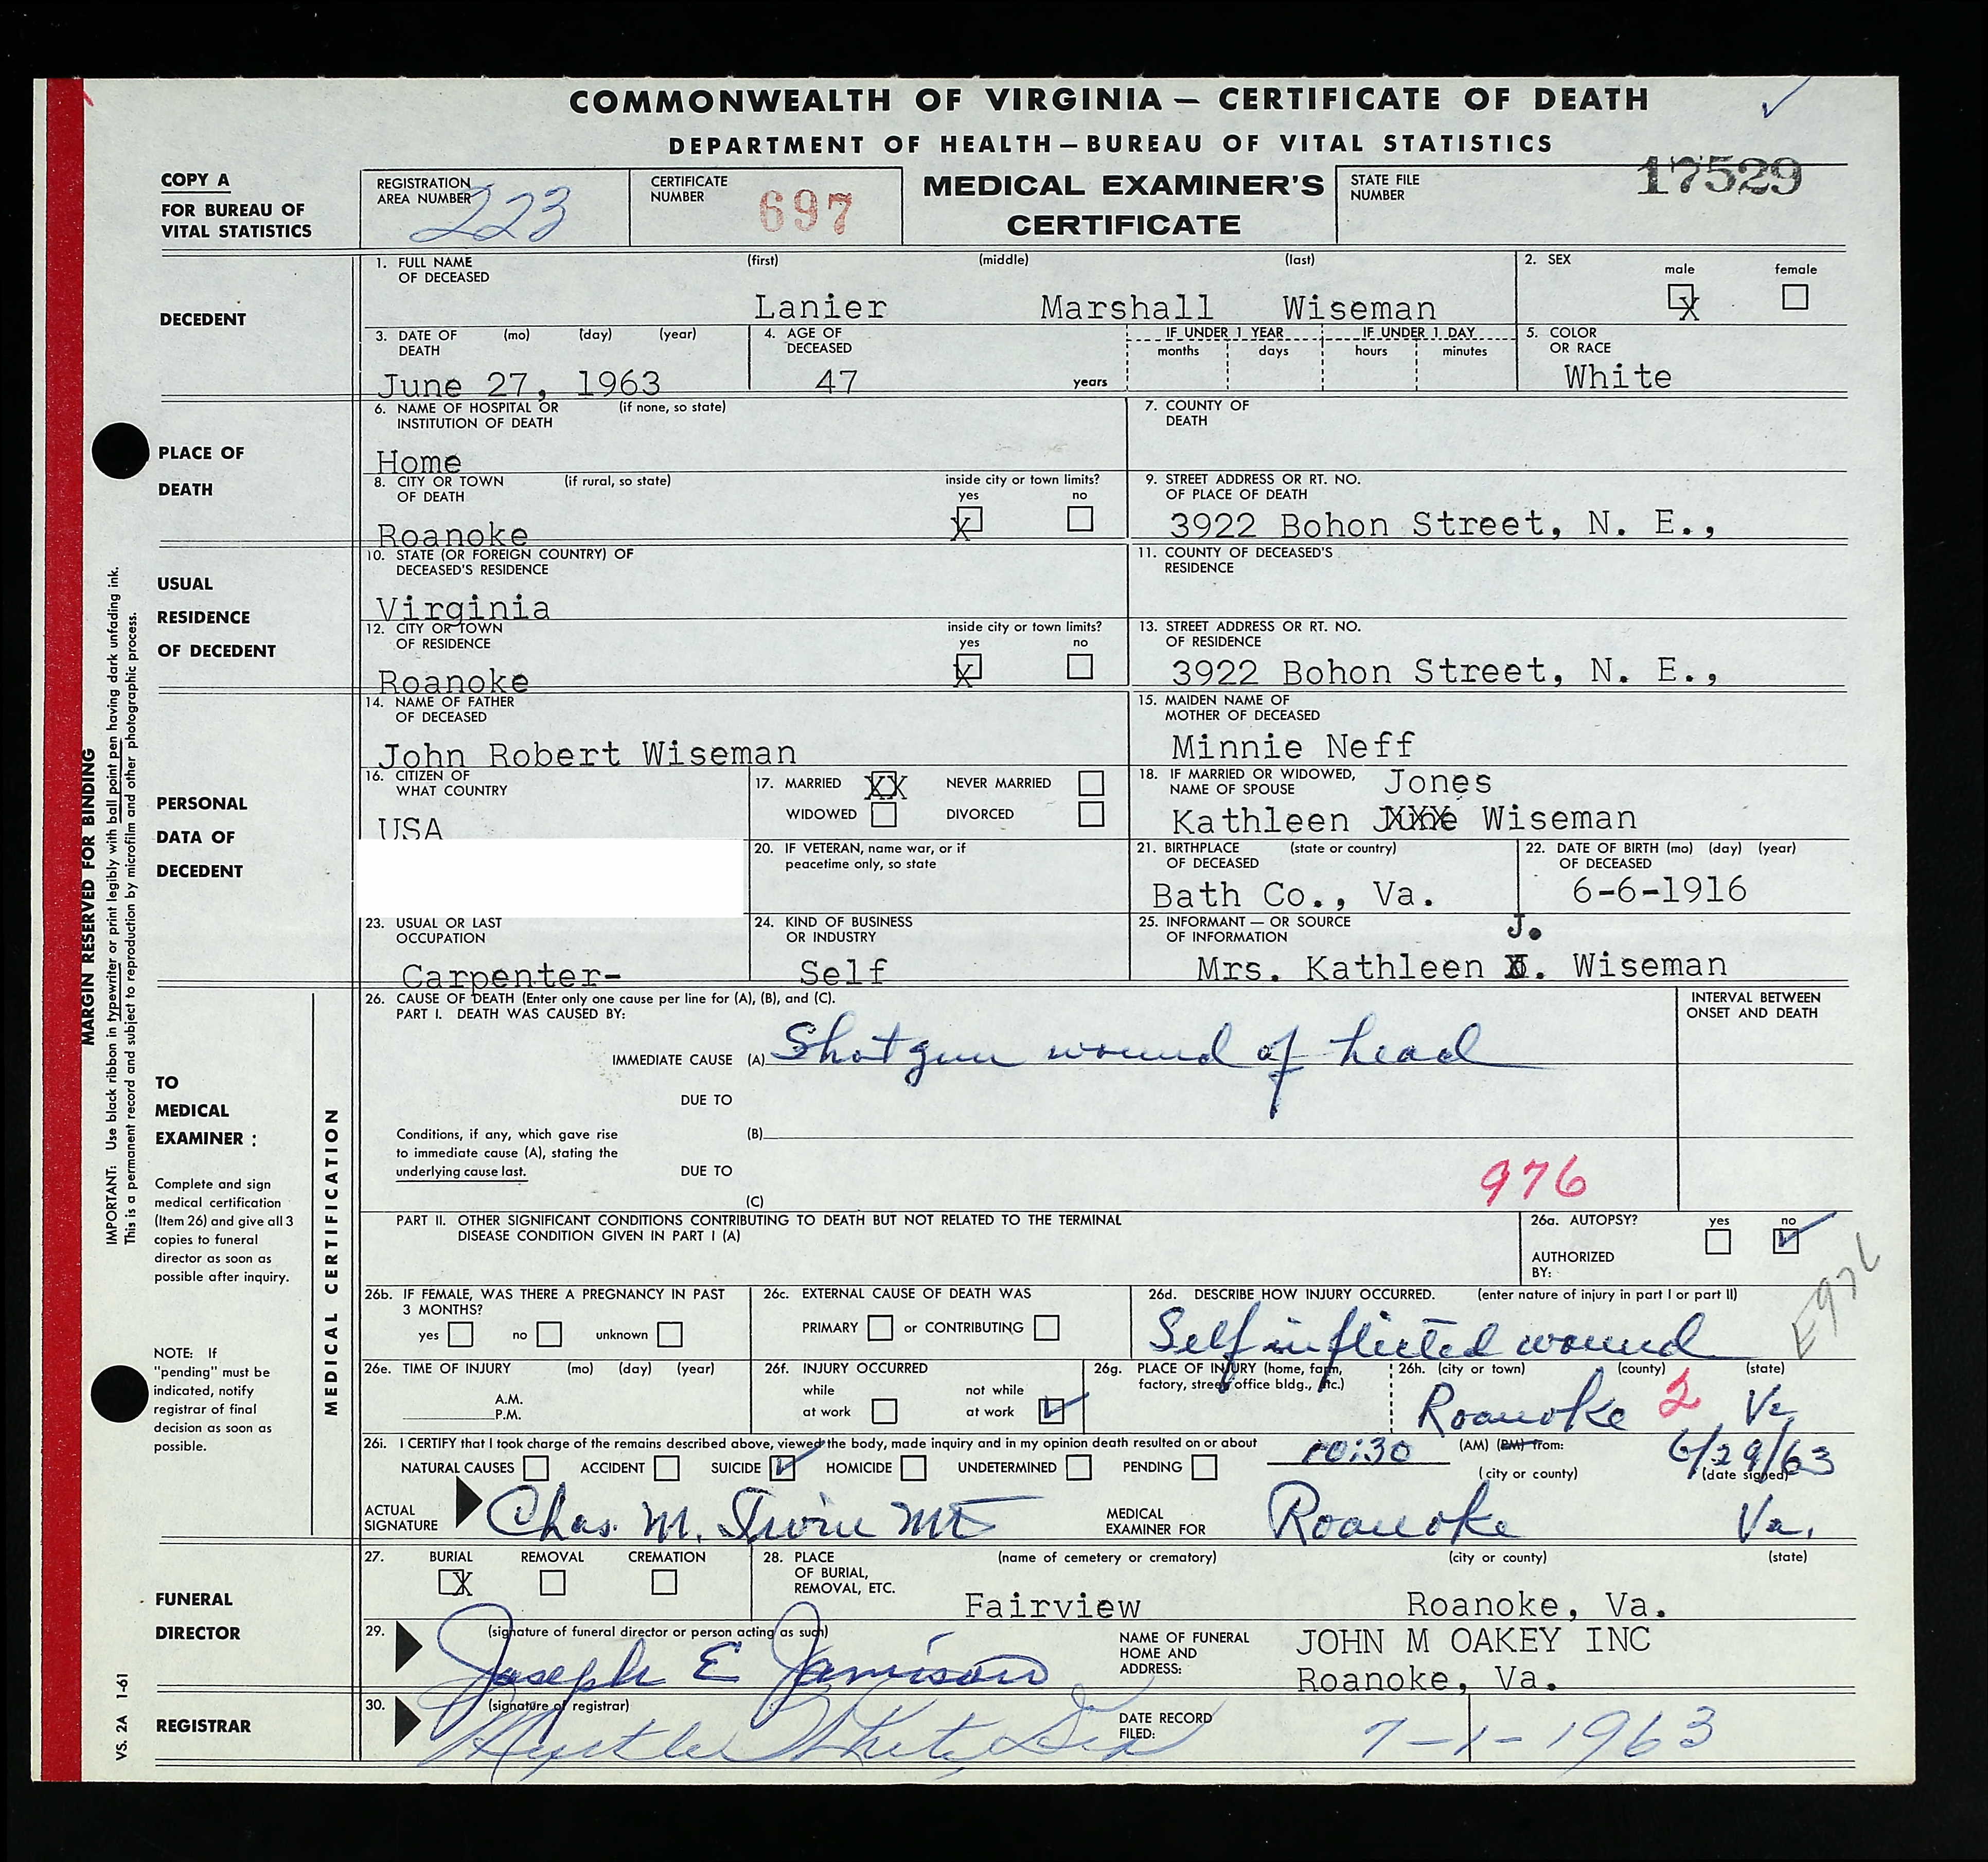 COMMONWEALTH OF VIRGINIA — CERTIFICATE OF DEATH
DEPARTMENT OF HEALTH — BUREAU OF VITAL STATISTICS
COPY A
FOR BUREAU OF
VITAL STATISTICS
REGISTRATION
AREA NUMBER
223
CERTIFICATE
NUMBER
697
MEDICAL EXAMINER'S
CERTIFICATE
STATE FILE
NUMBER
17529
DECEDENT
1. FULL NAME (first) (middle) (last)
OF DECEASED
Lanier Marshall Wiseman
2. SEX
male female
X
3. DATE OF (mo) (day) (year)
DEATH
June 27, 1963
4. AGE OF
DECEASED
47 years
IF UNDER 1 YEAR IF UNDER 1 DAY
months days hours minutes
5. COLOR
OR RACE
White
PLACE OF
DEATH
6. NAME OF HOSPITAL OR (if none, so state)
INSTITUTION OF DEATH
Home
7. COUNTY OF
DEATH
8. CITY OR TOWN (if rural, so state) inside city or town limits?
OF DEATH yes no
Roanoke X
9. STREET ADDRESS OR RT. NO.
OF PLACE OF DEATH
3922 Bohon Street, N. E.,
USUAL
RESIDENCE
OF DECEDENT
10. STATE (OR FOREIGN COUNTRY) OF
DECEASED'S RESIDENCE
Virginia
11. COUNTY OF DECEASED'S
RESIDENCE
12. CITY OR TOWN inside city or town limits?
OF RESIDENCE yes no
Roanoke X
13. STREET ADDRESS OR RT. NO.
OF RESIDENCE
3922 Bohon Street, N. E.,
PERSONAL
DATA OF
DECEDENT
14. NAME OF FATHER
OF DECEASED
John Robert Wiseman
15. MAIDEN NAME OF
MOTHER OF DECEASED
Minnie Neff
16. CITIZEN OF
WHAT COUNTRY
USA
17. MARRIED XX NEVER MARRIED
WIDOWED DIVORCED
18. IF MARRIED OR WIDOWED,
NAME OF SPOUSE
Jones
Kathleen June Wiseman
20. IF VETERAN, name war, or if
peacetime only, so state
21. BIRTHPLACE (state or country)
OF DECEASED
Bath Co., Va.
22. DATE OF BIRTH (mo) (day) (year)
OF DECEASED
6-6-1916
23. USUAL OR LAST
OCCUPATION
Carpenter-
24. KIND OF BUSINESS
OR INDUSTRY
Self
25. INFORMANT — OR SOURCE
OF INFORMATION
J.
Mrs. Kathleen . Wiseman
MARGIN RESERVED FOR BINDING
IMPORTANT: Use black ribbon in typewriter or print legibly with ball point pen having dark unfading ink.
This is a permanent record and subject to reproduction by microfilm and other photographic process.
TO
MEDICAL
EXAMINER:
Complete and sign
medical certification
(Item 26) and give all 3
copies to funeral
director as soon as
possible after inquiry.
NOTE: If
"pending" must be
indicated, notify
registrar of final
decision as soon as
possible.
MEDICAL CERTIFICATION
26. CAUSE OF DEATH (Enter only one cause per line for (A), (B), and (C).
PART I. DEATH WAS CAUSED BY:
INTERVAL BETWEEN
ONSET AND DEATH
IMMEDIATE CAUSE (A) Shotgun wound of head
DUE TO
Conditions, if any, which gave rise (B)
to immediate cause (A), stating the
underlying cause last. DUE TO
(C)
976
PART II. OTHER SIGNIFICANT CONDITIONS CONTRIBUTING TO DEATH BUT NOT RELATED TO THE TERMINAL
DISEASE CONDITION GIVEN IN PART I (A)
26a. AUTOPSY? yes no
AUTHORIZED
BY:
E976
26b. IF FEMALE, WAS THERE A PREGNANCY IN PAST
3 MONTHS?
yes no unknown
26c. EXTERNAL CAUSE OF DEATH WAS
PRIMARY or CONTRIBUTING
26d. DESCRIBE HOW INJURY OCCURRED. (enter nature of injury in part I or part II)
Self inflicted wound
26e. TIME OF INJURY (mo) (day) (year)
A.M.
P.M.
26f. INJURY OCCURRED
while not while
at work at work
26g. PLACE OF INJURY (home, farm,
factory, street, office bldg., etc.)
26h. (city or town) (county) (state)
Roanoke 2 Va
26i. I CERTIFY that I took charge of the remains described above, viewed the body, made inquiry and in my opinion death resulted on or about 10:30 (AM) (PM) from:
NATURAL CAUSES ACCIDENT SUICIDE HOMICIDE UNDETERMINED PENDING
(city or county) (date signed)
6/29/63
ACTUAL
SIGNATURE
Chas. M. Irvin MD
MEDICAL
EXAMINER FOR
Roanoke Va.
FUNERAL
DIRECTOR
27. BURIAL REMOVAL CREMATION
X
28. PLACE (name of cemetery or crematory) (city or county) (state)
OF BURIAL,
REMOVAL, ETC.
Fairview Roanoke, Va.
29. (signature of funeral director or person acting as such)
Joseph E Jamison
NAME OF FUNERAL
HOME AND
ADDRESS:
JOHN M OAKEY INC
Roanoke, Va.
REGISTRAR
30. (signature of registrar)
DATE RECORD
FILED:
7-1-1963
VS. 2A 1-61